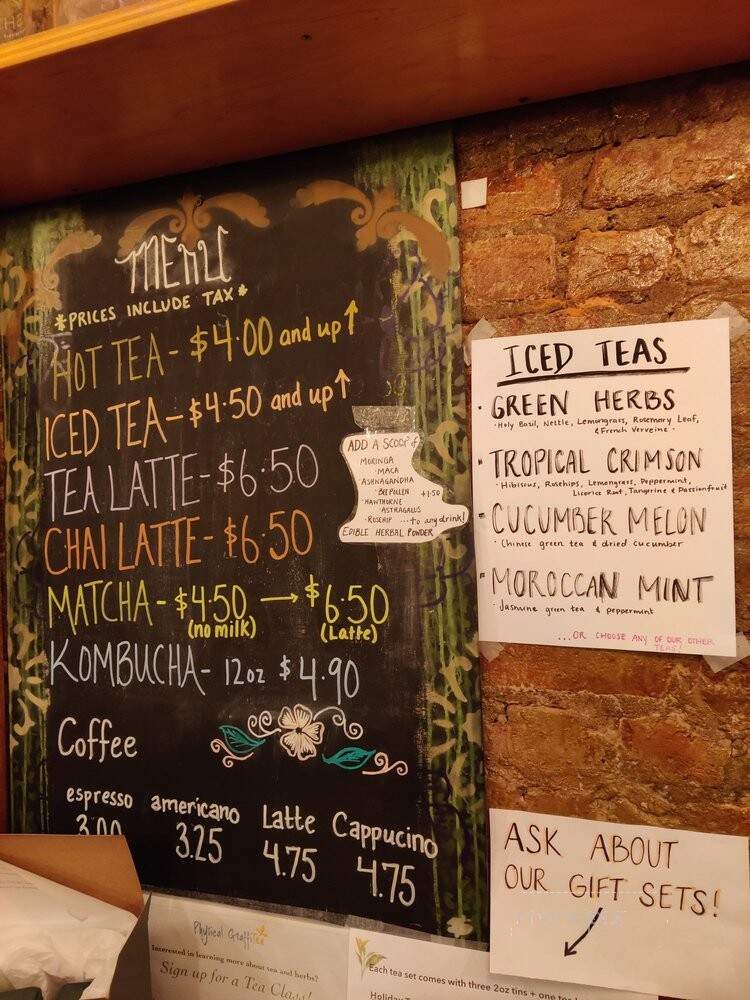 MENU
*PRICES INCLUDE TAX*
HOT TEA - $4.00 and up↑
ICED TEA - $4.50 and up↑
TEA LATTE - $6.50
CHAI LATTE - $6.50
MATCHA - $4.50 → $6.50
(no milk) (Latte)
KOMBUCHA - 12oz $4.90
Coffee
espresso americano Latte Cappucino
3.00 3.25 4.75 4.75
ADD A SCOOP of
MORINGA
· MACA
· ASHNAGANDHA
BEE POLLEN +1.50
HAWTHORNE
ASTRAGALUS
· ROSEHIP ... to any drink!
EDIBLE HERBAL POWDER
ICED TEAS
· GREEN HERBS
· Holy Basil, Nettle, Lemongrass, Rosemary Leaf,
& French Verveine ·
· TROPICAL CRIMSON
· Hibiscus, Rosehips, Lemongrass, Peppermint,
Licorice Root, Tangerine & Passionfruit
· CUCUMBER MELON
· Chinese green tea & dried cucumber
· MOROCCAN MINT
· Jasmine green tea & peppermint
...OR CHOOSE ANY OF OUR OTHER
TEAS!
ASK ABOUT
OUR GIFT SETS!
Physical Graffitea
Interested in learning more about tea and herbs?
Sign up for a Tea Class!
Each tea set comes with three 2oz tins + one
Holiday